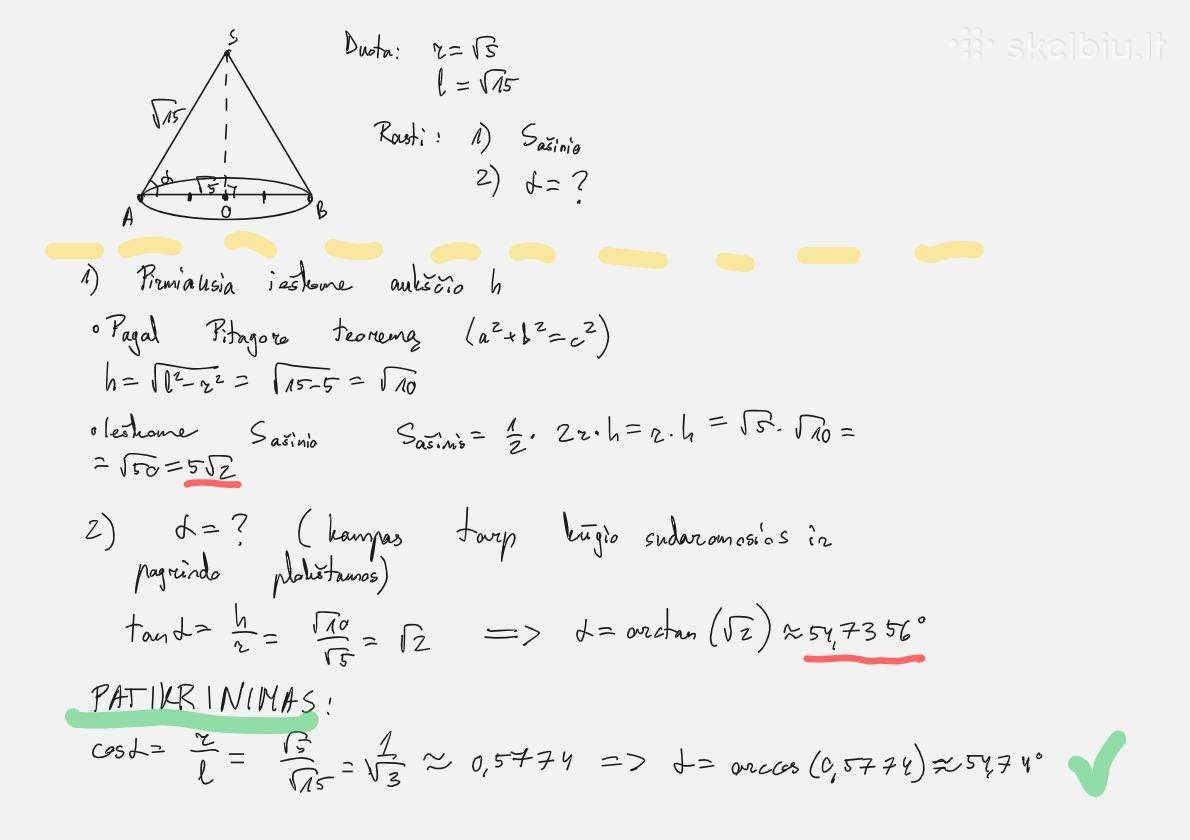 skelbiu.lt
S
√15
α
√5
A
O
B
Duota: r = √5
l = √15
Rasti: 1) Sašinio
2) α = ?
1) Pirmiausia ieškome aukščio h
• Pagal Pitagoro teoremą (a² + b² = c²)
h = √(l² − r²) = √(15−5) = √10
• Ieškome Sašinio Sašinis = 1/2 · 2r · h = r · h = √5 · √10 =
= √50 = 5√2
2) α = ? (kampas tarp kūgio sudaromosios ir
pagrindo plokštumos)
tan α = h/r = √10/√5 = √2 => α = arctan (√2) ≈ 54,7356°
PATIKRINIMAS:
cos α = r/l = √5/√15 = 1/√3 ≈ 0,5774 => α = arccos (0,5774) ≈ 54,74°